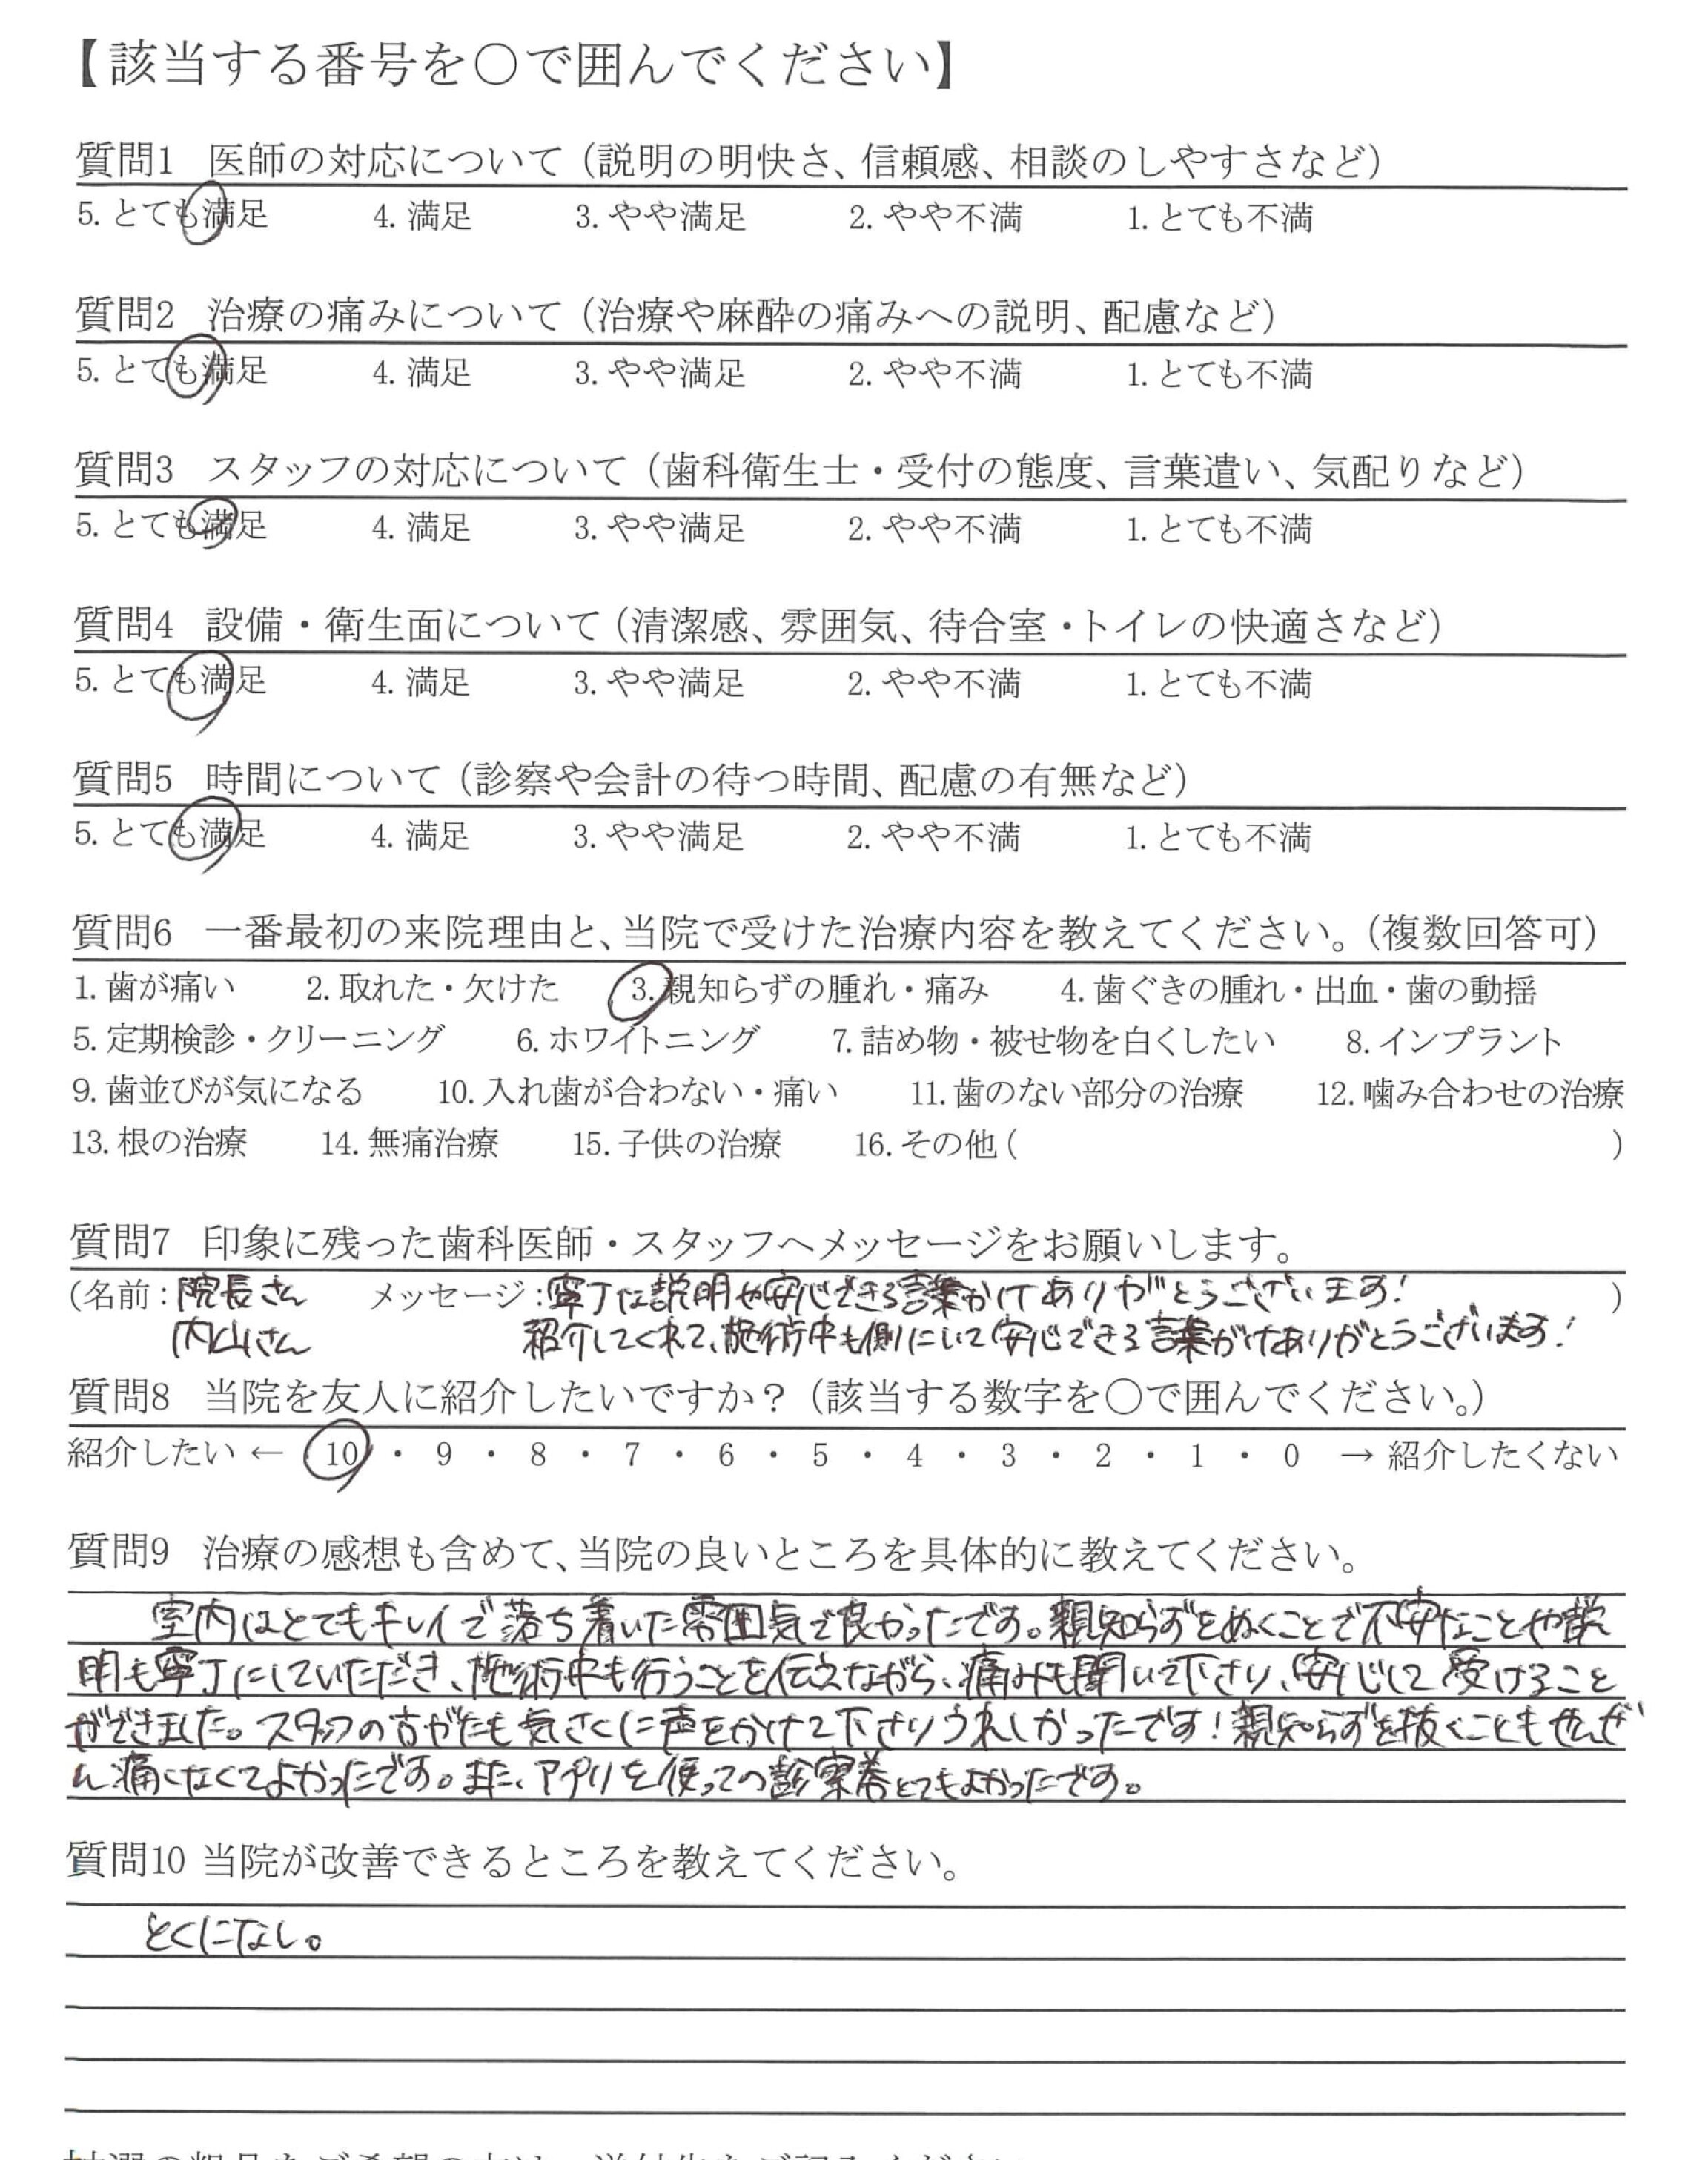 【該当する番号を○で囲んでください】
質問1 医師の対応について（説明の明快さ、信頼感、相談のしやすさなど）
5. とても満足 4. 満足 3. やや満足 2. やや不満 1. とても不満
質問2 治療の痛みについて（治療や麻酔の痛みへの説明、配慮など）
5. とても満足 4. 満足 3. やや満足 2. やや不満 1. とても不満
質問3 スタッフの対応について（歯科衛生士・受付の態度、言葉遣い、気配りなど）
5. とても満足 4. 満足 3. やや満足 2. やや不満 1. とても不満
質問4 設備・衛生面について（清潔感、雰囲気、待合室・トイレの快適さなど）
5. とても満足 4. 満足 3. やや満足 2. やや不満 1. とても不満
質問5 時間について（診察や会計の待つ時間、配慮の有無など）
5. とても満足 4. 満足 3. やや満足 2. やや不満 1. とても不満
質問6 一番最初の来院理由と、当院で受けた治療内容を教えてください。（複数回答可）
1. 歯が痛い 2. 取れた・欠けた 3. 親知らずの腫れ・痛み 4. 歯ぐきの腫れ・出血・歯の動揺
5. 定期検診・クリーニング 6. ホワイトニング 7. 詰め物・被せ物を白くしたい 8. インプラント
9. 歯並びが気になる 10. 入れ歯が合わない・痛い 11. 歯のない部分の治療 12. 噛み合わせの治療
13. 根の治療 14. 無痛治療 15. 子供の治療 16. その他 ( )
質問7 印象に残った歯科医師・スタッフへメッセージをお願いします。
(名前：院長さん メッセージ：寧丁な説明や安心できる言葉かけありがとうございます! )
内山さん 紹介してくれて、施術中も側にいて安心できる言葉がけありがとうございます!
質問8 当院を友人に紹介したいですか？（該当する数字を○で囲んでください。）
紹介したい ← 10 ・ 9 ・ 8 ・ 7 ・ 6 ・ 5 ・ 4 ・ 3 ・ 2 ・ 1 ・ 0 → 紹介したくない
質問9 治療の感想も含めて、当院の良いところを具体的に教えてください。
室内はとてもキレイで落ち着いた雰囲気で良かったです。親知らずをぬくことで不安なことや説
明も寧丁にしていただき、施術中も行うことを伝えながら、痛みも聞いて下さり、安心して受けること
ができました。スタッフの方がたも気さくに声をかけて下さりうれしかったです!親知らずを抜くこともぜんぜ
ん痛くなくてよかったです。また、アプリを使っての診察券とてもよかったです。
質問10 当院が改善できるところを教えてください。
とくになし。